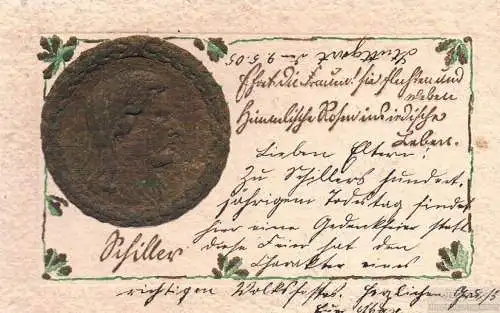 Stuttgart den 9.5.05
Ehret die Frauen! sie flechten und
weben
Himmlische Rosen ins irdische
Leben.
Lieben Eltern!
Zu Schillers hundert-
jährigem Todestag findet
hier eine Gedenkfeier statt
diese Feier hat den
Charakter eines
richtigen Volksfestes. Herzlichen Gruß
Euer Max
Schiller